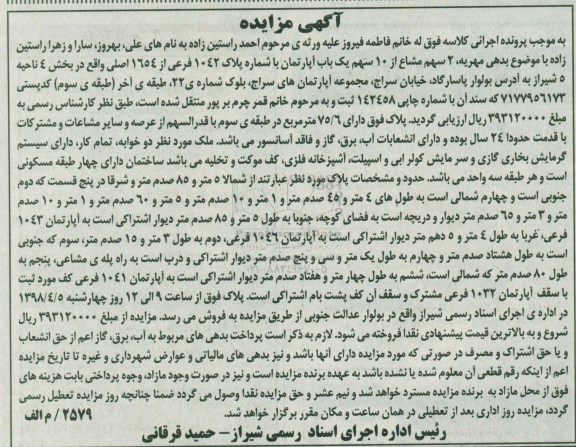 آگهی مزایده
به موجب پرونده اجرائی کلاسه فوق له خانم فاطمه فیروز علیه ورثه ی مرحوم احمد راستین زاده به نام های علی، بهروز، سارا و زهرا راستین
زاده با موضوع بدهی مهریه، ۲ سهم مشاع از ۱۰ سهم یک باب آپارتمان با شماره پلاک ۱۰۴۲ فرعی از ۱۶۵۴ اصلی واقع در بخش ۴ ناحیه
۵ شیراز به آدرس بولوار پاسارگاد، خیابان سراج، مجموعه آپارتمان های سراج، بلوک شماره ی۲۲، طبقه ی آخر (طبقه ی سوم) کدپستی
۷۱۷۷۹۵۶۱۷۳ که سند آن با شماره چاپی ۱۴۲۴۵۸ ثبت و به مرحوم خانم قمر چرم بر پور منتقل شده است، طبق نظر کارشناس رسمی به
مبلغ ۳۹۳۱۲۰۰۰۰ ریال ارزیابی گردید. پلاک فوق دارای ۷۵/۶ مترمربع در طبقه ی سوم با قدرالسهم از عرصه و سایر مشاعات و مشترکات
با قدمت حدودا ۲۴ سال بوده و دارای انشعابات آب، برق، گاز و فاقد آسانسور می باشد. ملک مورد نظر دو خوابه، تمام کار، دارای سیستم
گرمایش بخاری گازی و سر مایش کولر ابی و اسپیلت، آشپزخانه فلزی، کف موکت و تخلیه می باشد ساختمان دارای چهار طبقه مسکونی
است و هر طبقه سه واحد می باشد. حدود و مشخصات پلاک مورد نظر عبارتند از شمالا ۵ متر و ۸۵ صدم متر و شرقا در پنج قسمت که دوم
جنوبی است و چهارم شمالی است به طول های ۴ متر و ۴۵ صدم متر و ۱ متر و ۱۰ صدم متر و ۵ متر و ۶۰ صدم متر و ۱ متر و ۱۰ صدم
متر و ۳ متر و ۶۵ صدم متر دیوار و دریچه است به فضای کوچه، جنوبا به طول ۵ متر و ۸۵ صدم متر دیوار اشتراکی است به آپارتمان ۱۰۴۳
فرعی، غربا به طول ۴ متر و ۵ دهم متر دیوار اشتراکی است به آپارتمان ۱۰۴۶ فرعی، دوم به طول ۳ متر و ۱۵ صدم متر، سوم که جنوبی
است به طول هشتاد صدم متر و چهارم به طول یک متر و سی و پنج صدم متر دیوار اشتراکی و درب است به راه پله ی مشاعی، پنجم به
طول ۸۰ صدم متر که شمالی است، ششم به طول چهار متر و هفتاد صدم متر دیوار اشتراکی است به آپارتمان ۱۰۴۱ فرعی کف مورد ثبت
با سقف آپارتمان ۱۰۳۲ فرعی مشترک و سقف آن کف پشت بام اشتراکی است. پلاک فوق از ساعت ۹ الی ۱۲ روز چهارشنبه ۱۳۹۸/۴/۵
در اداره ی اجرای اسناد رسمی شیراز واقع در بولوار عدالت جنوبی از طریق مزایده به فروش می رسد. مزایده از مبلغ ۳۹۳۱۲۰۰۰۰ ریال
شروع و به بالاترین قیمت پیشنهادی نقدا فروخته می شود. لازم به ذکر است پرداخت بدهی های مربوط به آب، برق، گاز اعم از حق انشعاب
و یا حق اشتراک و مصرف در صورتی که مورد مزایده دارای آنها باشد و نیز بدهی های مالیاتی و عوارض شهرداری و غیره تا تاریخ مزایده
اعم از اینکه رقم قطعی آن معلوم شده یا نشده باشد به عهده برنده مزایده است و نیز در صورت وجود مازاد، وجوه پرداختی بابت هزینه های
فوق از محل مازاد به برنده مزایده مسترد خواهد شد و نیم عشر و حق مزایده نقدا وصول می گردد ضمنا چنانچه روز مزایده تعطیل رسمی
گردد، مزایده روز اداری بعد از تعطیلی در همان ساعت و مکان مقرر برگزار خواهد شد.
۲۵۷۹ / م الف
رئیس اداره اجرای اسناد رسمی شیراز - حمید قرقانی